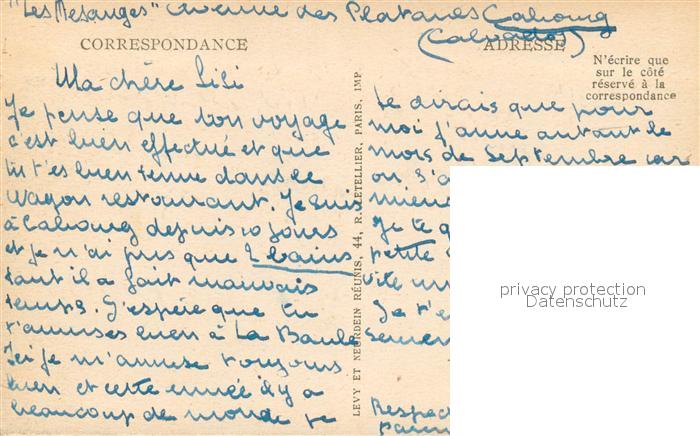 "Les Mesanges" avenue des Platanes Cabourg
(Calvados)
CORRESPONDANCE
ADRESSE
N'écrire que
sur le côté
réservé à la
correspondance
Ma chère Lili
Je pense que ton voyage
c'est bien effectué et que
tu t'es bien tenue dans le
wagon restaurant. Je suis
à Cabourg depuis 10 jours
et je n'ai pris que 2 bains
tant il a fait mauvais
temps. J'espère que tu
t'amuses bien à La Baule
Ici je m'amuse toujours
bien et cette année il y a
beaucoup de monde je
LEVY ET NEURDEIN RÉUNIS, 44, R. LETELLIER, PARIS, IMP
te dirais que pour
moi j'aime autant le
mois de Septembre car
on s'a
mieu
Je te q
petite
vite un
Je t'e
Respec
privacy protection
Datenschutz